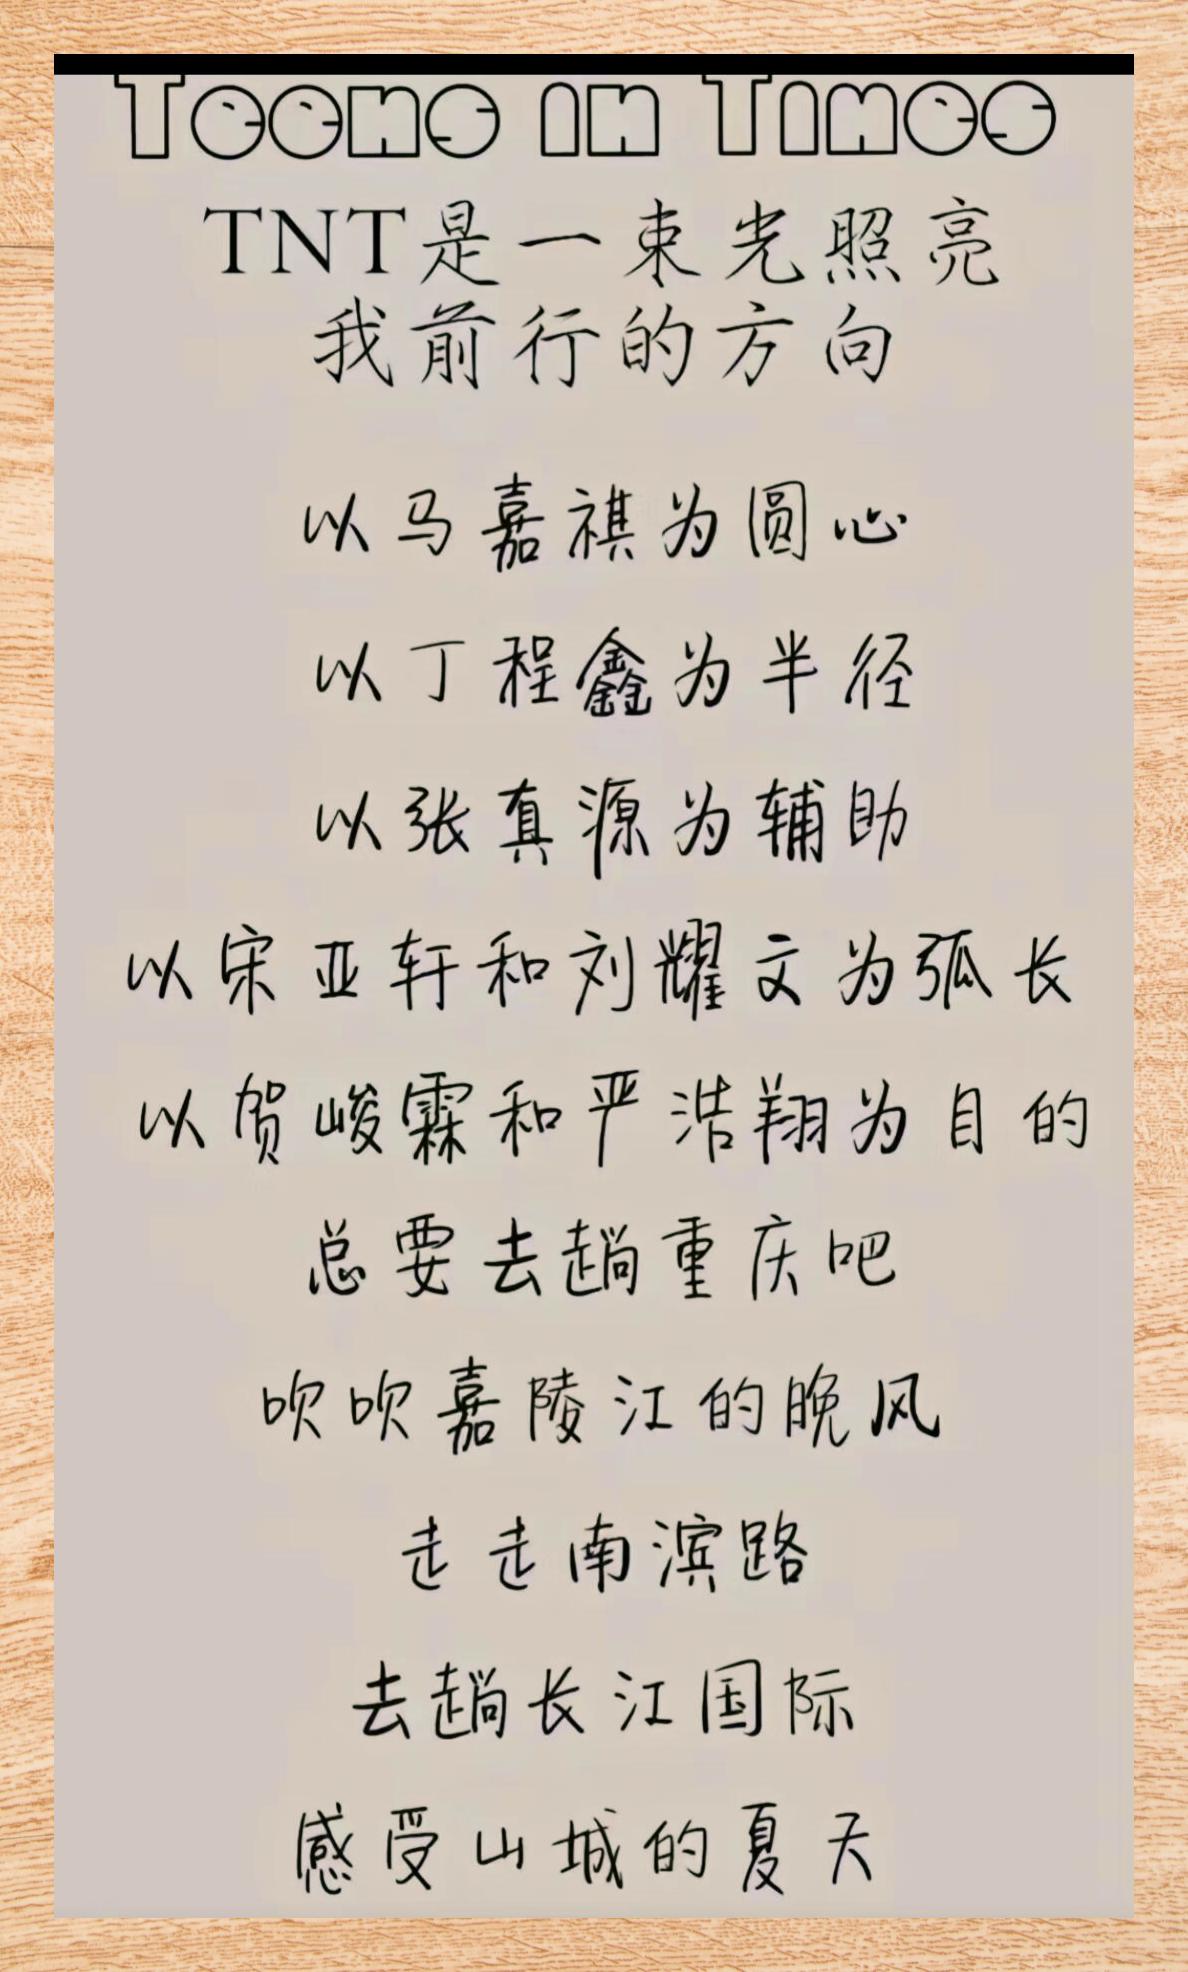 Teens in Times
TNT是一束光照亮
我前行的方向
以马嘉祺为圆心
以丁程鑫为半径
以张真源为辅助
以宋亚轩和刘耀文为弧长
以贺峻霖和严浩翔为目的
总要去趟重庆吧
吹吹嘉陵江的晚风
走走南滨路
去趟长江国际
感受山城的夏天